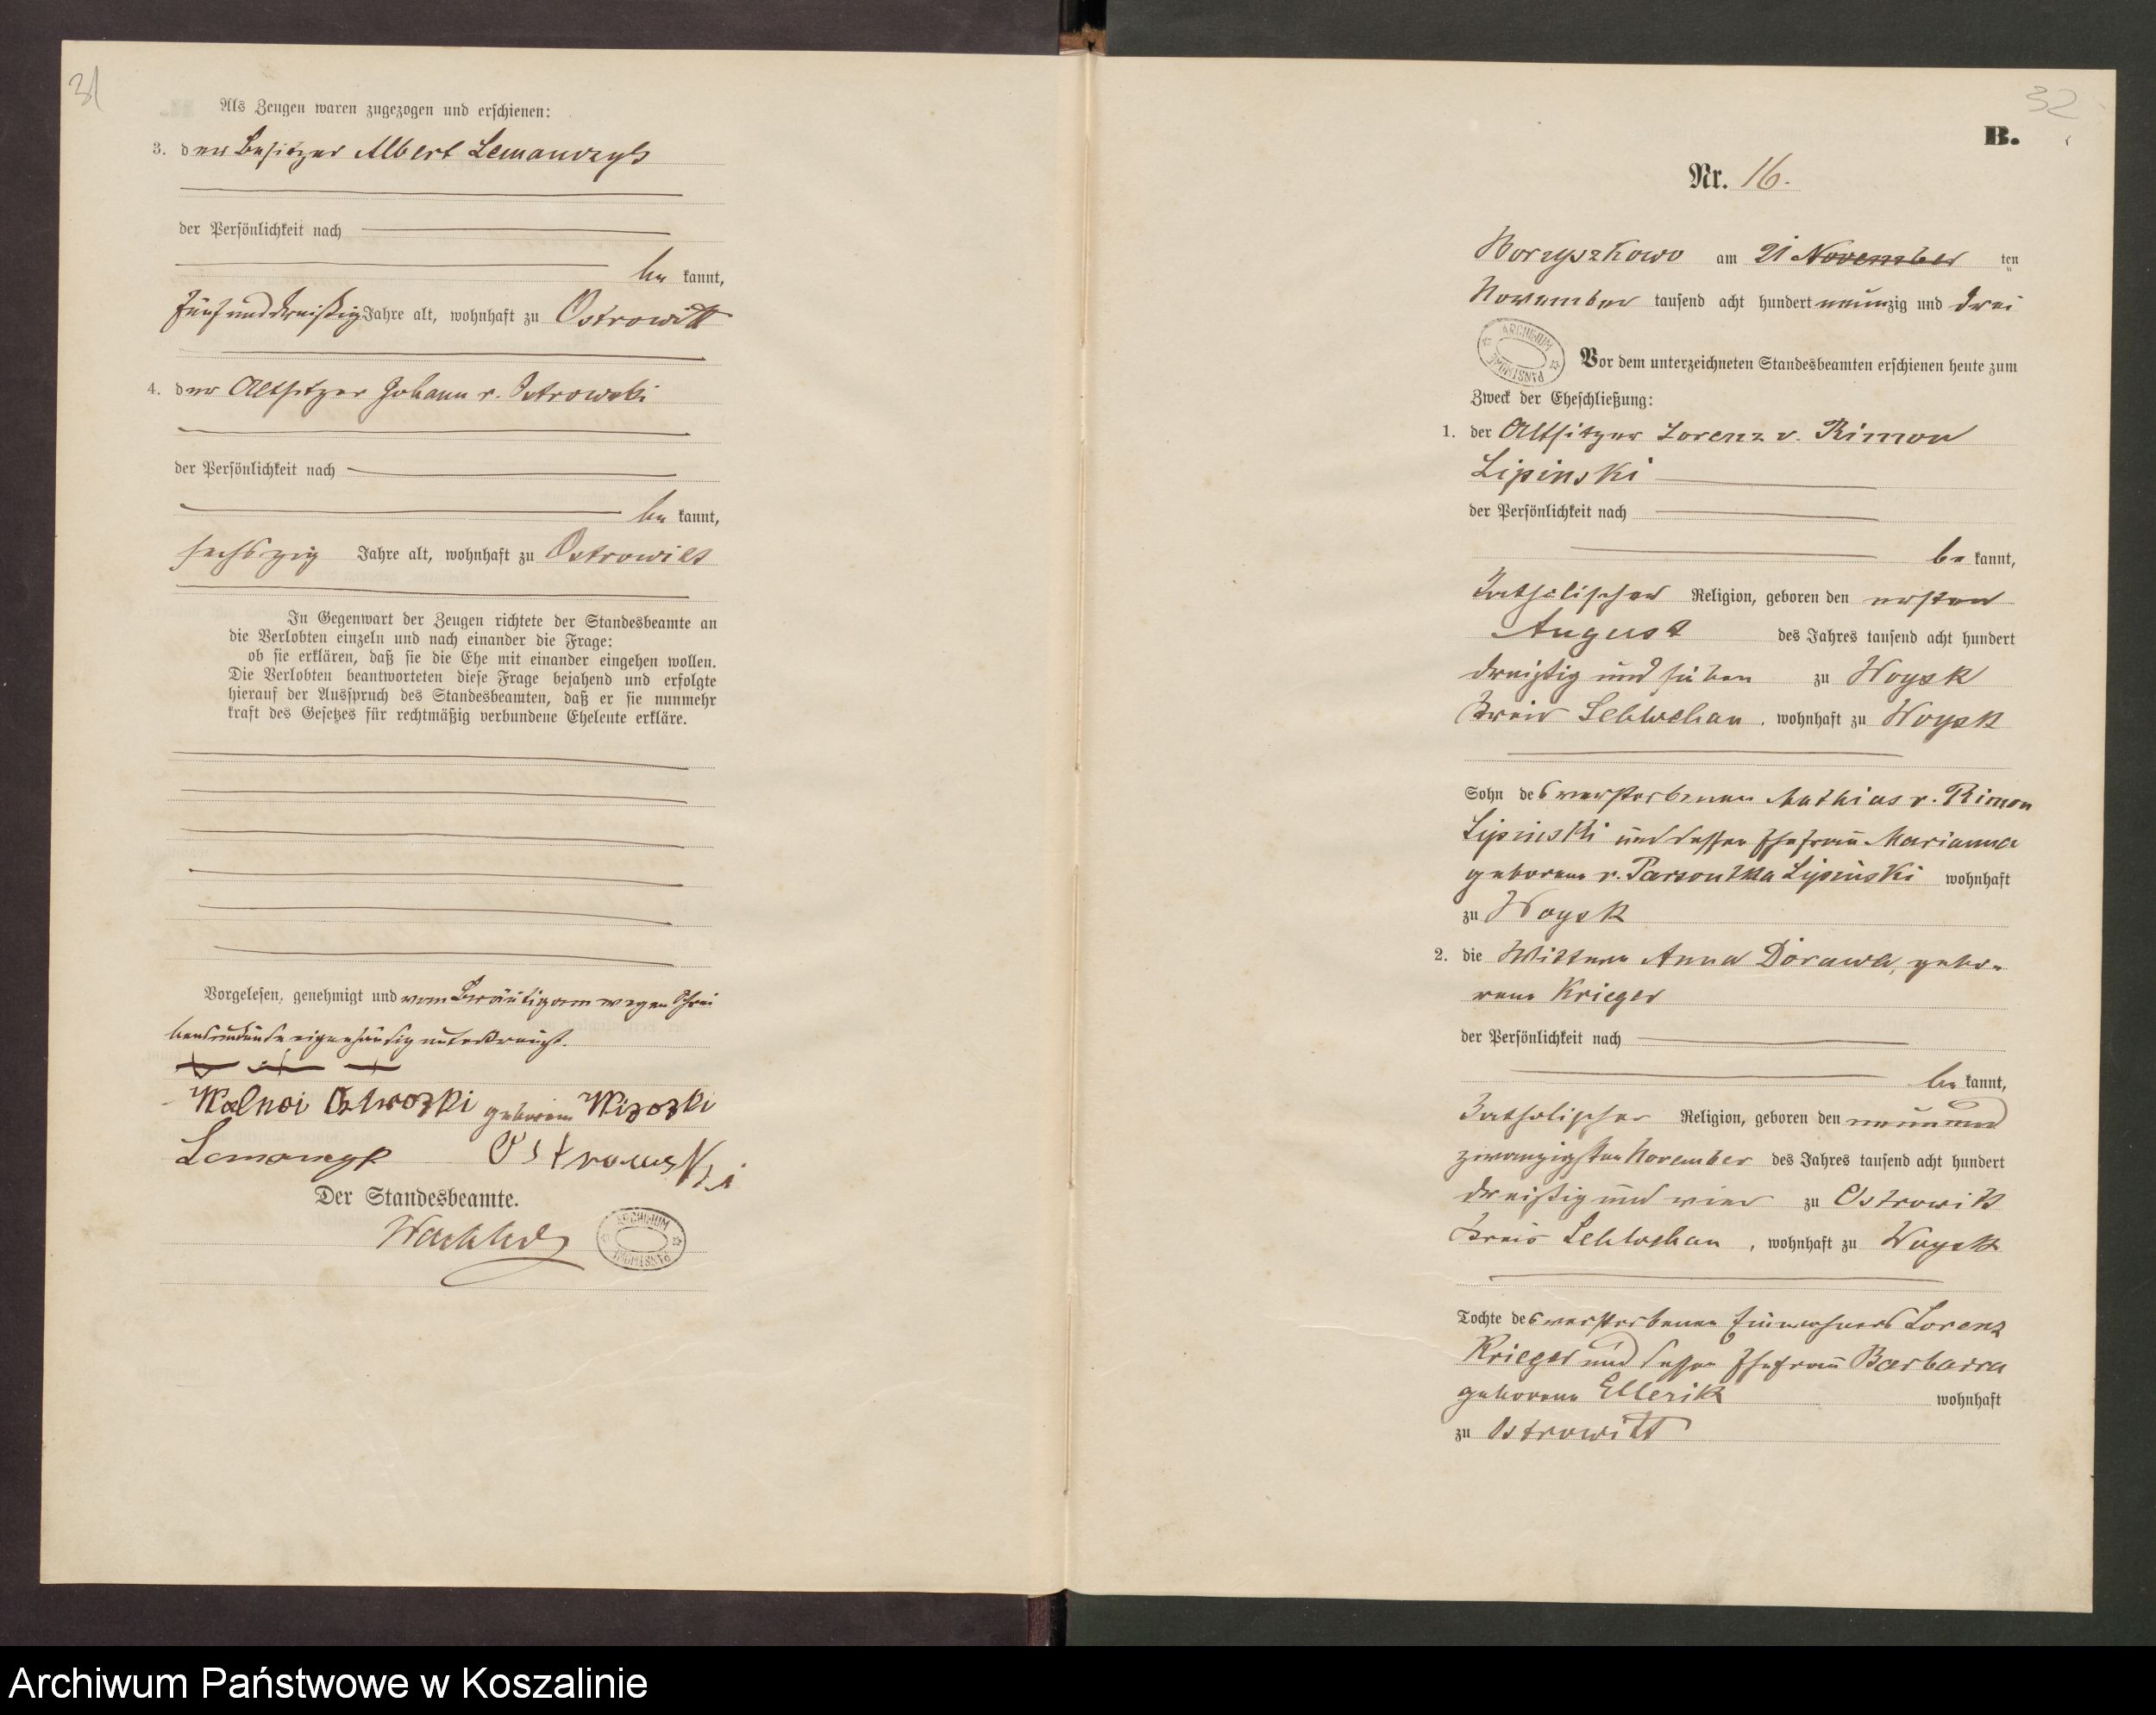 31
Als Zeugen waren zugezogen und erschienen:
3. der Besitzer Albert Lemanczyk
der Persönlichkeit nach
be kannt,
fünfunddreißig Jahre alt, wohnhaft zu Ostrowitt
4. der Altsitzer Johann v. Ostrowski
der Persönlichkeit nach
be kannt,
sechszig Jahre alt, wohnhaft zu Ostrowitt
In Gegenwart der Zeugen richtete der Standesbeamte an
die Verlobten einzeln und nach einander die Frage:
ob sie erklären, daß sie die Ehe mit einander eingehen wollen.
Die Verlobten beantworteten diese Frage bejahend und erfolgte
hierauf der Ausspruch des Standesbeamten, daß er sie nunmehr
kraft des Gesetzes für rechtmäßig verbundene Eheleute erkläre.
Vorgelesen, genehmigt und vom Bräutigam wegen Schrei
bensunkunde eigenhändig unterkreuzt.
+ + +
geborene
Lemanczyk Ostrowski
Der Standesbeamte.
ARCHIWUM PAŃSTWOWE
32
B.
Nr. 16.
Borzyszkowo am 21 November ten
November tausend acht hundert neunzig und drei
ARCHIWUM PAŃSTWOWE
Vor dem unterzeichneten Standesbeamten erschienen heute zum
Zweck der Eheschließung:
1. der Altsitzer Lorenz v. Rimon
Lipinski
der Persönlichkeit nach
be kannt,
katholischer Religion, geboren den ersten
August des Jahres tausend acht hundert
dreißig und sieben zu Woysk
Kreis Schlochau, wohnhaft zu Woysk
Sohn des verstorbenen Mathias v. Rimon
Lipinski und dessen Ehefrau Marianna
geborene v. Lipinski wohnhaft
zu Woysk
2. die Wittwe Anna Dorawa, gebo-
rene Krieger
der Persönlichkeit nach
be kannt,
katholischer Religion, geboren den neunund
zwanzigsten November des Jahres tausend acht hundert
dreißig und vier zu Ostrowitt
Kreis Schlochau, wohnhaft zu Woysk
Tochte des verstorbenen Einwohners Lorenz
Krieger und dessen Ehefrau Barbara
geborene Ellerik wohnhaft
zu Ostrowitt
Archiwum Państwowe w Koszalinie